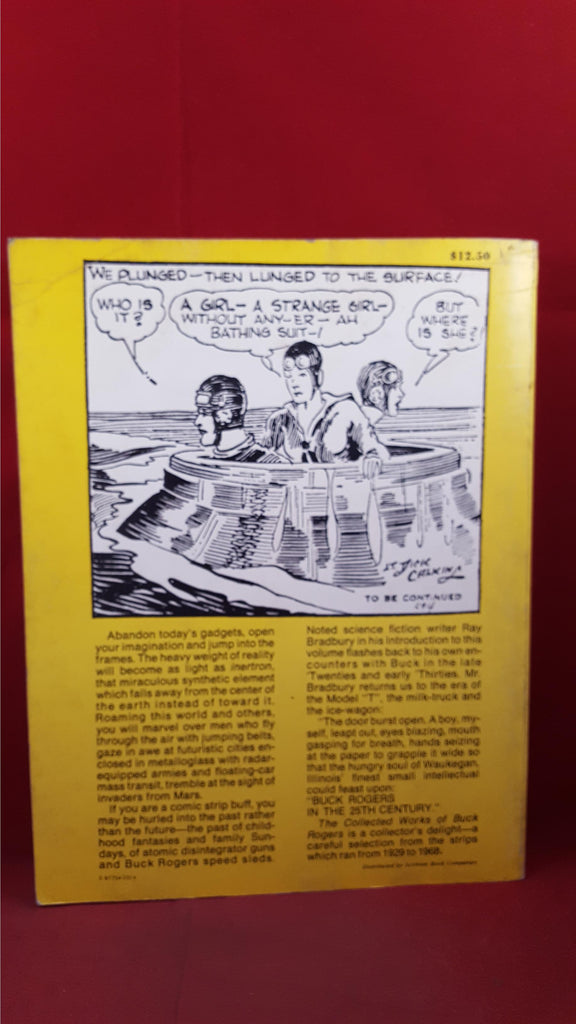 $12.50
WE PLUNGED—THEN LUNGED TO THE SURFACE!
WHO IS
IT?
A GIRL— A STRANGE GIRL—
WITHOUT ANY—ER— AH
BATHING SUIT—!
BUT
WHERE
IS SHE?
LT. DICK
CALKINS
TO BE CONTINUED
Abandon today's gadgets, open
your imagination and jump into the
frames. The heavy weight of reality
will become as light as inertron,
that miraculous synthetic element
which falls away from the center of
the earth instead of toward it.
Roaming this world and others,
you will marvel over men who fly
through the air with jumping belts,
gaze in awe at futuristic cities en-
closed in metalloglass with radar-
equipped armies and floating-car
mass transit, tremble at the sight of
invaders from Mars.
If you are a comic strip buff, you
may be hurled into the past rather
than the future—the past of child-
hood fantasies and family Sun-
days, of atomic disintegrator guns
and Buck Rogers speed sleds.
Noted science fiction writer Ray
Bradbury in his introduction to this
volume flashes back to his own en-
counters with Buck in the late
'Twenties and early 'Thirties. Mr.
Bradbury returns us to the era of
the Model "T", the milk-truck and
the ice-wagon:
"The door burst open. A boy, my-
self, leapt out, eyes blazing, mouth
gasping for breath, hands seizing
at the paper to grapple it wide so
that the hungry soul of Waukegan,
Illinois' finest small intellectual
could feast upon:
"BUCK ROGERS
IN THE 25TH CENTURY."
The Collected Works of Buck
Rogers is a collector's delight—a
careful selection from the strips
which ran from 1929 to 1968.